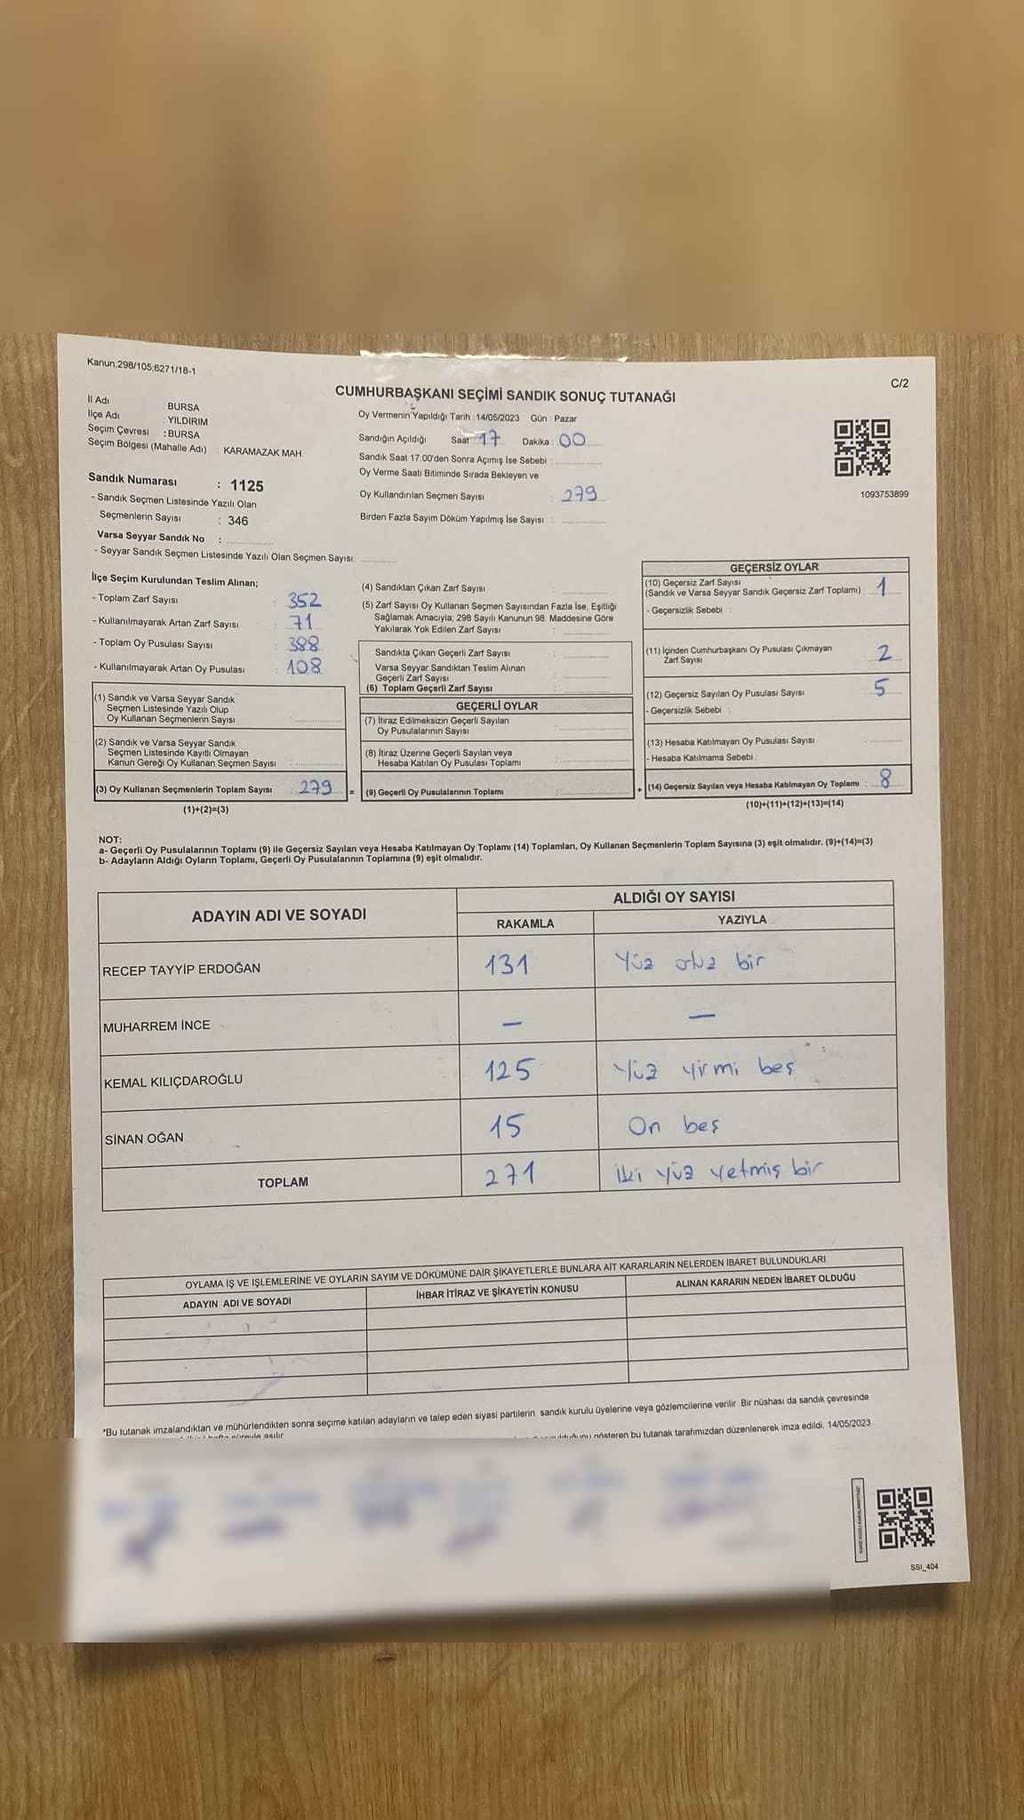 Kanun:298/105;6271/18-1
C/2
CUMHURBAŞKANI SEÇİMİ SANDIK SONUÇ TUTANAĞI
İl Adı : BURSA
İlçe Adı : YILDIRIM
Seçim Çevresi : BURSA
Seçim Bölgesi (Mahalle Adı) : KARAMAZAK MAH.
Sandık Numarası : 1125
- Sandık Seçmen Listesinde Yazılı Olan
Seçmenlerin Sayısı : 346
Varsa Seyyar Sandık No :
- Seyyar Sandık Seçmen Listesinde Yazılı Olan Seçmen Sayısı:
Oy Vermenin Yapıldığı Tarih : 14/05/2023 Gün : Pazar
Sandığın Açıldığı Saat: 17 Dakika: 00
Sandık Saat 17:00'den Sonra Açımış İse Sebebi :
Oy Verme Saati Bitiminde Sırada Bekleyen ve
Oy Kullandırılan Seçmen Sayısı : 279
Birden Fazla Sayım Döküm Yapılmış İse Sayısı :
1093753899
İlçe Seçim Kurulundan Teslim Alınan;
- Toplam Zarf Sayısı : 352
- Kullanılmayarak Artan Zarf Sayısı : 71
- Toplam Oy Pusulası Sayısı : 388
- Kullanılmayarak Artan Oy Pusulası : 108
(1) Sandık ve Varsa Seyyar Sandık
Seçmen Listesinde Yazılı Olup
Oy Kullanan Seçmenlerin Sayısı :
(2) Sandık ve Varsa Seyyar Sandık
Seçmen Listesinde Kayıtlı Olmayan
Kanun Gereği Oy Kullanan Seçmen Sayısı :
(3) Oy Kullanan Seçmenlerin Toplam Sayısı : 279 =
(1)+(2)=(3)
(4) Sandıktan Çıkan Zarf Sayısı :
(5) Zarf Sayısı Oy Kullanan Seçmen Sayısından Fazla İse, Eşitliği
Sağlamak Amacıyla; 298 Sayılı Kanunun 98. Maddesine Göre
Yakılarak Yok Edilen Zarf Sayısı :
Sandıkta Çıkan Geçerli Zarf Sayısı :
Varsa Seyyar Sandıktan Teslim Alınan
Geçerli Zarf Sayısı :
(6) Toplam Geçerli Zarf Sayısı :
GEÇERLİ OYLAR
(7) İtiraz Edilmeksizin Geçerli Sayılan
Oy Pusulalarının Sayısı :
(8) İtiraz Üzerine Geçerli Sayılan veya
Hesaba Katılan Oy Pusulası Toplamı :
(9) Geçerli Oy Pusulalarının Toplamı : +
GEÇERSİZ OYLAR
(10) Geçersiz Zarf Sayısı
(Sandık ve Varsa Seyyar Sandık Geçersiz Zarf Toplamı) : 1
- Geçersizlik Sebebi :
(11) İçinden Cumhurbaşkanı Oy Pusulası Çıkmayan
Zarf Sayısı : 2
(12) Geçersiz Sayılan Oy Pusulası Sayısı : 5
- Geçersizlik Sebebi :
(13) Hesaba Katılmayan Oy Pusulası Sayısı :
- Hesaba Katılmama Sebebi :
(14) Geçersiz Sayılan veya Hesaba Katılmayan Oy Toplamı : 8
(10)+(11)+(12)+(13)=(14)
NOT:
a- Geçerli Oy Pusulalarının Toplamı (9) ile Geçersiz Sayılan veya Hesaba Katılmayan Oy Toplamı (14) Toplamları, Oy Kullanan Seçmenlerin Toplam Sayısına (3) eşit olmalıdır. (9)+(14)=(3)
b- Adayların Aldığı Oyların Toplamı, Geçerli Oy Pusulalarının Toplamına (9) eşit olmalıdır.
ADAYIN ADI VE SOYADI
ALDIĞI OY SAYISI
RAKAMLA YAZIYLA
RECEP TAYYİP ERDOĞAN 131 Yüz otuz bir
MUHARREM İNCE – –
KEMAL KILIÇDAROĞLU 125 Yüz yirmi beş
SİNAN OĞAN 15 On beş
TOPLAM 271 İki yüz yetmiş bir
OYLAMA İŞ VE İŞLEMLERİNE VE OYLARIN SAYIM VE DÖKÜMÜNE DAİR ŞİKAYETLERLE BUNLARA AİT KARARLARIN NELERDEN İBARET BULUNDUKLARI
ADAYIN ADI VE SOYADI İHBAR İTİRAZ VE ŞİKAYETİN KONUSU ALINAN KARARIN NEDEN İBARET OLDUĞU
*Bu tutanak imzalandıktan ve mühürlendikten sonra seçime katılan adayların ve talep eden siyasi partilerin sandık kurulu üyelerine veya gözlemcilerine verilir. Bir nüshası da sandık çevresinde
gösteren bu tutanak tarafımızdan düzenlenerek imza edildi. 14/05/2023
SSI_404